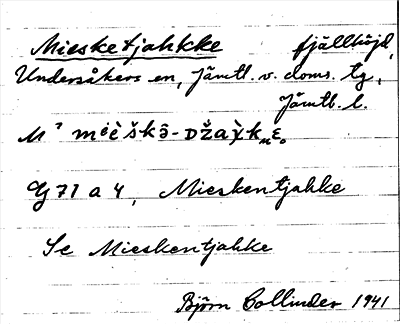 Miesketjahkke fjällhöjd,
Undersåkers sn, Jämtl. v. doms. tg,
Jämtl. l.
G 71 a 4, Mieskentjahke
Se Mieskentjahke
Björn Collinder 1941